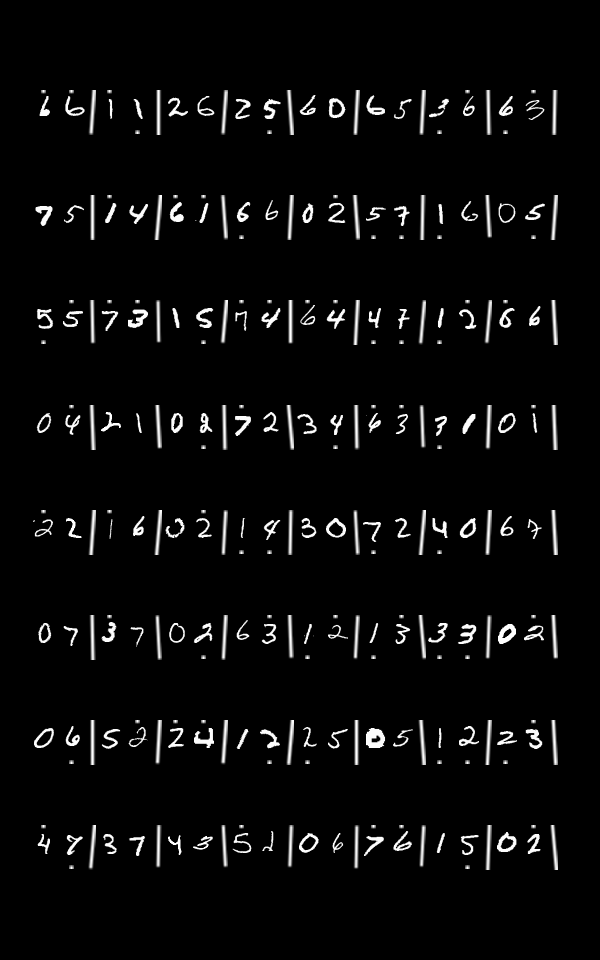 6̇ 6̇ | 1̇ 1̣ | 2 6 | 2 5̣ | 6 0 | 6 5 | 3̣ 6̇ | 6̣ 3̇ |
7 5̇ | 1̇ 4 | 6̇ 1̇ | 6̣ 6 | 0 2̇ | 5̣ 7̣ | 1̣ 6 | 0 5̣ |
5̣ 5̇ | 7̇ 3̇ | 1 5̣ | 7̇ 4̇ | 6̇ 4̇ | 4̣ 7̣ | 1̣ 2 | 6̇ 6 |
0 4̇ | 2 1 | 0 2̣ | 7 2 | 3 4̣ | 6̇ 3̇ | 3̣ 1 | 0 1̇ |
2̇ 2 | 1̇ 6 | 0 2̇ | 1 4̣ | 3 0 | 7̣ 2 | 4̣ 0 | 6 7̇ |
0 7 | 3̇ 7 | 0 2̣ | 6 3̇ | 1̣ 2̇ | 1̣ 3̇ | 3̣ 3̣ | 0 2̇ |
0 6̣ | 5 2̇ | 2̇ 4̇ | 1 2̣ | 2̣ 5 | 0 5 | 1̣ 2 | 2̣ 3̇ |
4̇ 7̣ | 3 7 | 4 3 | 5̇ 2 | 0 6 | 7̇ 6̇ | 1 5̣ | 0 2̇ |